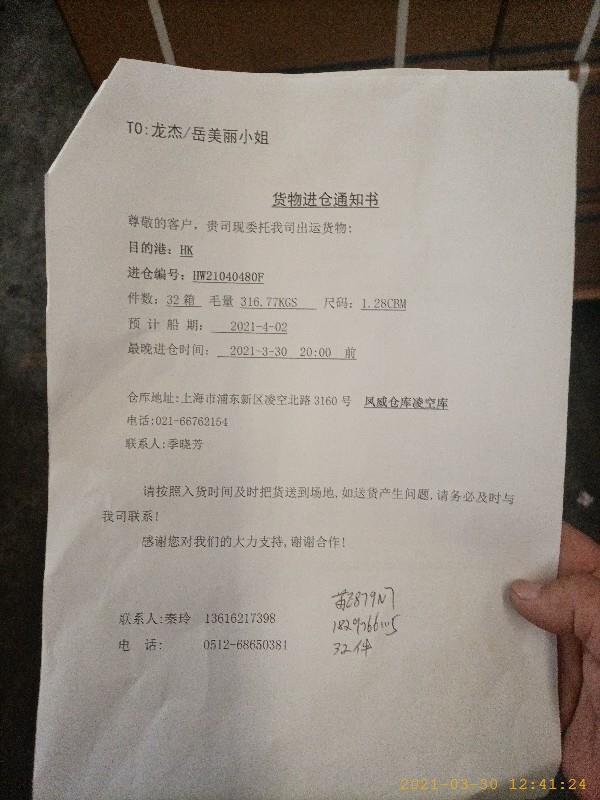 TO:龙杰/岳美丽小姐
货物进仓通知书
尊敬的客户，贵司现委托我司出运货物:
目的港：HK
进仓编号：HW21040480F
件数：32箱 毛量 316.77KGS 尺码：1.28CBM
预 计 船 期： 2021-4-02
最晚进仓时间： 2021-3-30 20:00 前
仓库地址:上海市浦东新区凌空北路3160号 凤威仓库凌空库
电话:021-66762154
联系人:季晓芳
请按照入货时间及时把货送到场地,如送货产生问题,请务必及时与
我司联系!
感谢您对我们的大力支持,谢谢合作!
联系人:秦玲 13616217398
电 话: 0512-68650381
32件
2021-03-30 12:41:24